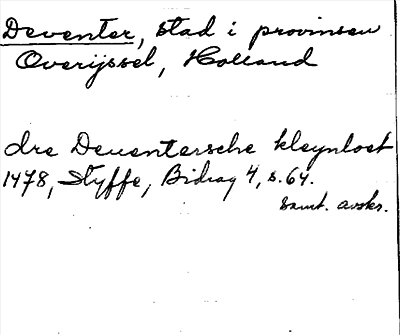 Deventer, stad i provinsen
Overijssel, Holland
dre Deuentersche kleynloet
1478, Styffe, Bidrag 4, s. 64.
samt. avskr.